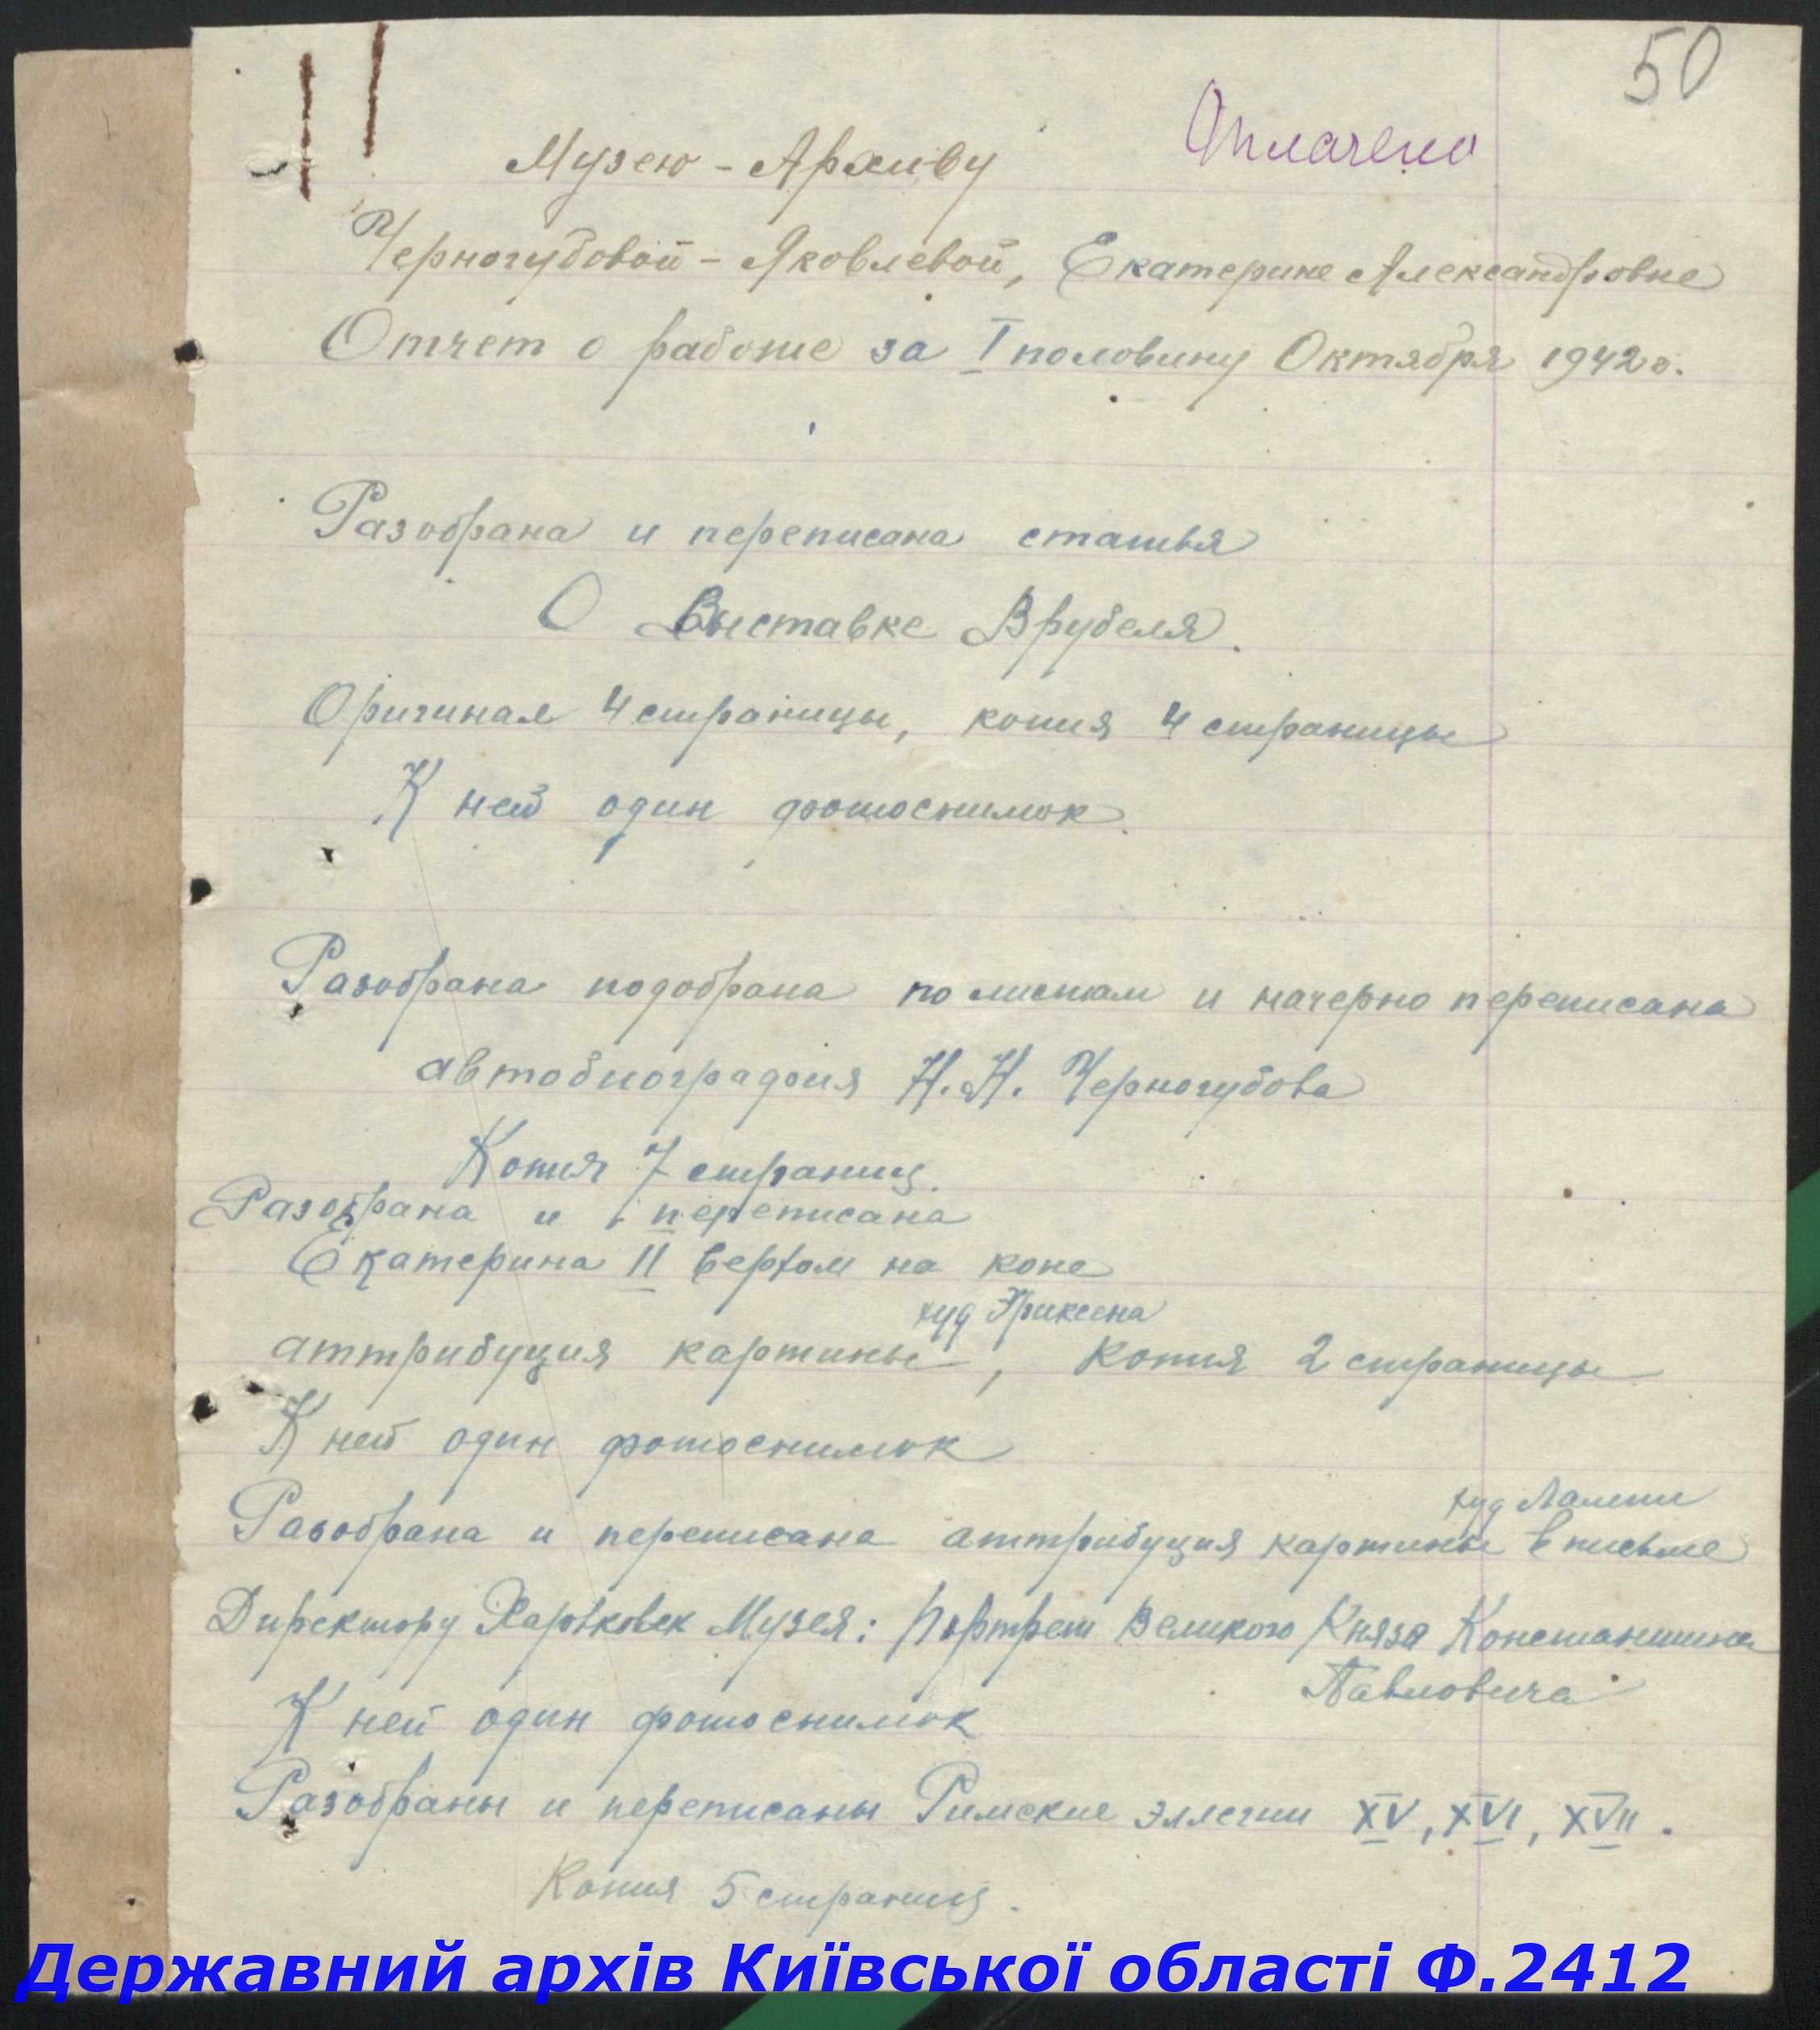 50
Оплачено
Музею - Архиву
Черногубовой - Яковлевой, Екатерине Александровне
Отчет о работе за I половину Октября 1942 г.
Разобрана и переписана статья
О Выставке Врубеля.
Оригинал 4 страницы, копия 4 страницы
К ней один фотоснимок.
Разобрана подобрана по листам и начерно переписана
автобиография Н. Н. Черногубова
Копия 7 страниц.
Разобрана и переписана
Екатерина II верхом на коне
худ Эриксена
аттрибуция картины, копия 2 страницы
К ней один фотоснимок
худ Лампи
Разобрана и переписана аттрибуция картины в письме
Директору Харьковск Музея: Портрет Великого Князя Константина
Павловича
К ней один фотоснимок
Разобраны и переписаны Римские элегии XV, XVI, XVII.
Копия 5 страниц.
Державний архів Київської області Ф.2412